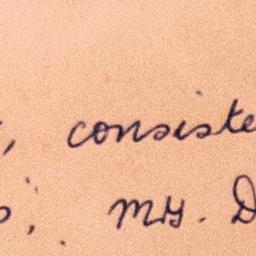 , consiste
; my. D